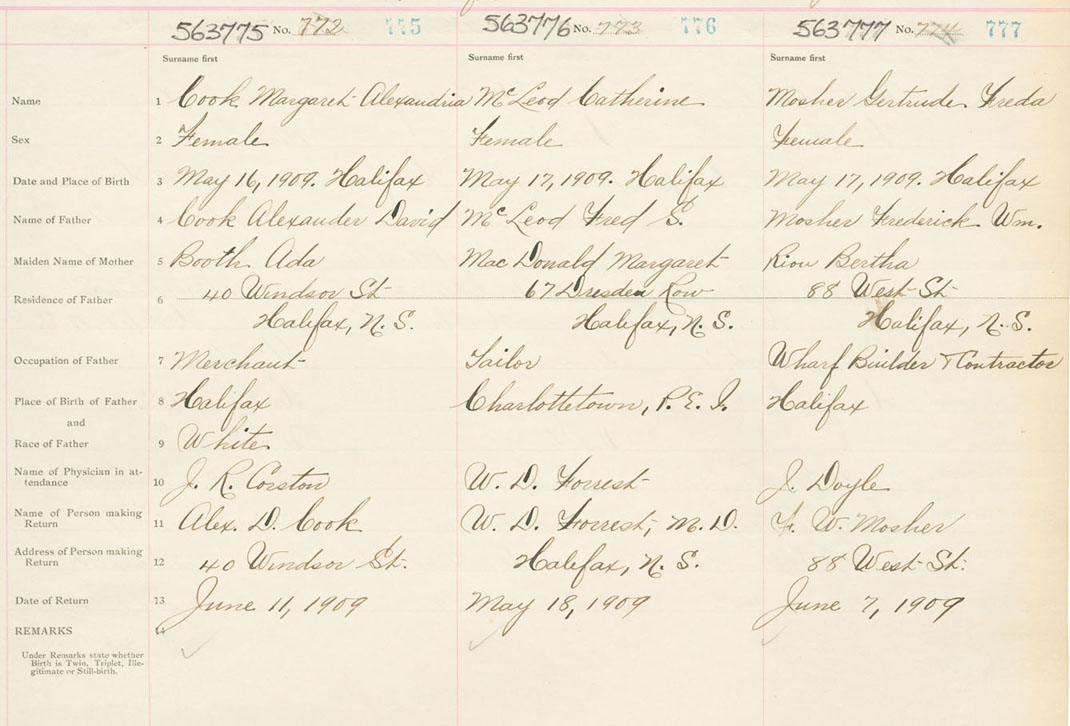 563775 No. 772 775 563776 No. 773 776 563777 No. 774 777
Surname first Surname first Surname first
Name 1 Cook Margaret Alexandria McLeod Catherine Mosher Gertrude Freda
Sex 2 Female Female Female
Date and Place of Birth 3 May 16, 1909. Halifax May 17, 1909. Halifax May 17, 1909. Halifax
Name of Father 4 Cook Alexander David McLeod Fred S. Mosher Frederick Wm.
Maiden Name of Mother 5 Booth Ada MacDonald Margaret Riou Bertha
40 Windsor St 67 Dresden Row 88 West St
Residence of Father 6
Halifax, N. S. Halifax, N. S. Halifax, N. S.
Occupation of Father 7 Merchant Tailor Wharf Builder & Contractor
Place of Birth of Father 8 Halifax Charlottetown, P. E. I. Halifax
and
Race of Father 9 White
Name of Physician in at-
tendance 10 J. R. Corston W. D. Forrest J. Doyle
Name of Person making
Return 11 Alex. D. Cook W. D. Forrest, M. D. F. W. Mosher
Address of Person making
Return 12 40 Windsor St. Halifax, N. S. 88 West St.
Date of Return 13 June 11, 1909 May 18, 1909 June 7, 1909
REMARKS 14
Under Remarks state whether
Birth is Twin, Triplet, Ille-
gitimate or Still-birth.